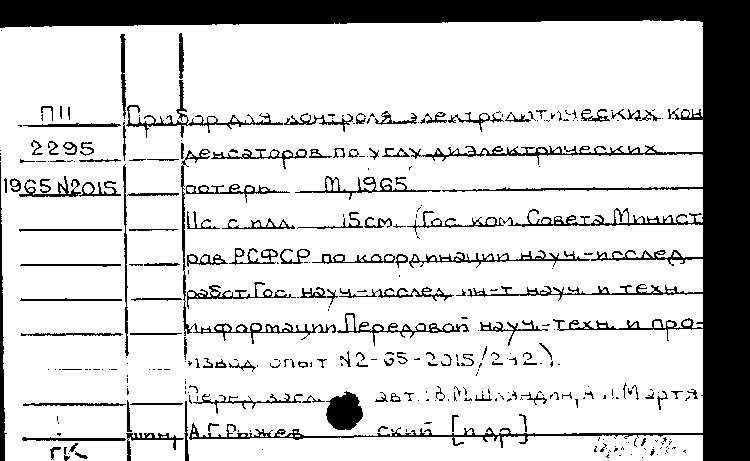 П11 Прибор для контроля электролитических кон
2295 денсаторов по углу диэлектрических
1965 N2015 потерь М, 1965
11с. с илл. 15см. (Гос. ком. Совета Минист
ров РСФСР по координации науч.-исслед.
работ. Гос. науч.-исслед. ин-т науч. и техн.
информации. Передовой науч.-техн. и про-
извод. опыт N2-65-2015/242.).
Перед загл. авт.: В.М.Шляндин, А.И.Мартя-
шин, А.Г.Рыжев ский [и др.]
ГК